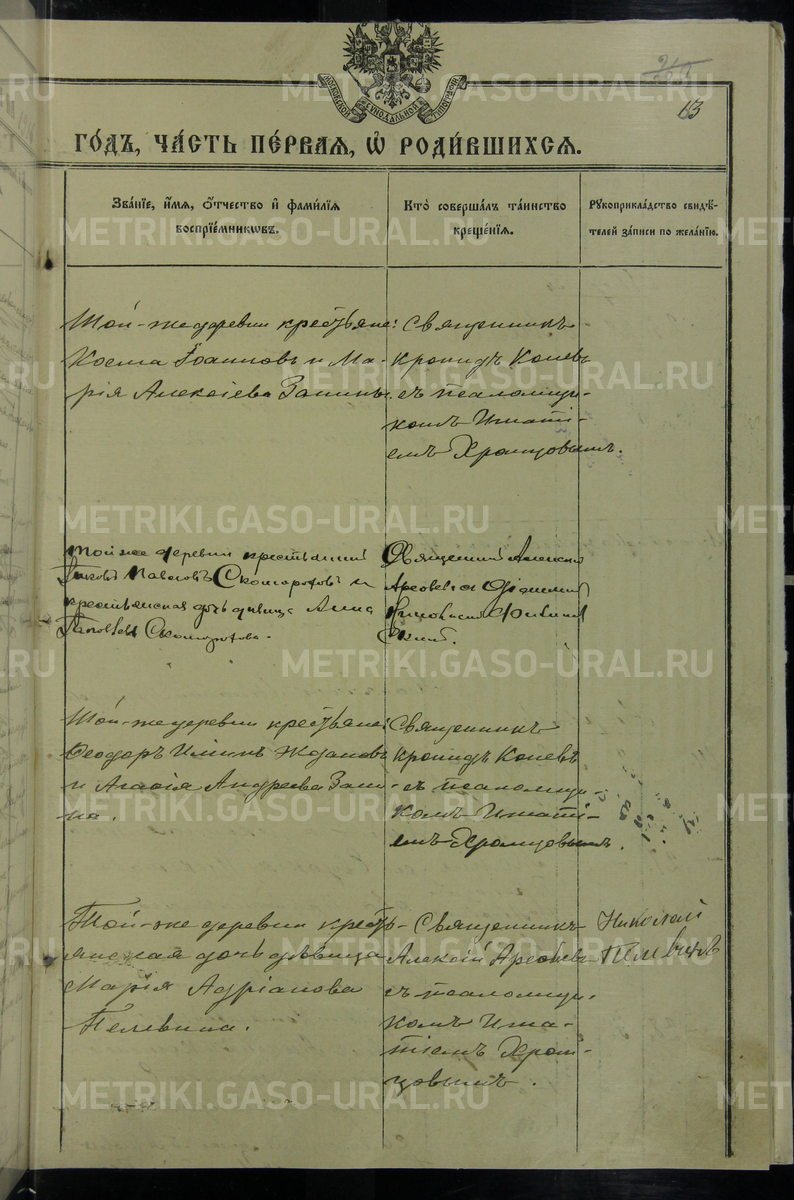 МОСКОВСКОЙ СѴНОДАЛЬНОЙ ТИПОГРАФІИ
13
ГО́ДЪ, ЧА́СТЬ ПЕ́РВАЯ, Ѡ҆ РОДИ́ВШИХСЯ.
Зва́нїе, и҆́мя, ѻ҆́тчество и҆ фами́лїя
воспрїе́мникѡвъ.
Кто̀ соверша́лъ та́инство
креще́нїя.
Рꙋкоприкла́дство свидѣ́-
телей за́писи по жела́нїю.
Той-же деревни крестьяне:
Косма Іоанновъ и Ма-
рія Алексіева Занины.
Священникъ
Кронидъ Коневъ
съ псаломщи-
комъ Игнаті-
емъ Хромцовымъ.
той же деревни крестьянинъ
Яковъ Павловъ Скоморо́ховъ и
крестьянская дочь дѣвица Анна
Скоморохова.
Священникъ Алексій
Той-же деревни крестьяне:
Ѳеодоръ Ильинъ Ждановъ
и Агаѳія Андреева Зани-
на.
Священникъ
Кронидъ Коневъ
съ псаломщи-
комъ Игнаті-
емъ Хромцовымъ.
Той-же деревни кресть-
янская дочь дѣвица
Марія Адріанова
Пелевина.
Священникъ
Алексій Арефьев
съ псаломщи-
комъ Игна-
тіемъ Хром-
цовымъ.
Николай
Пелевинъ
METRIKI.GASO-URAL.RU